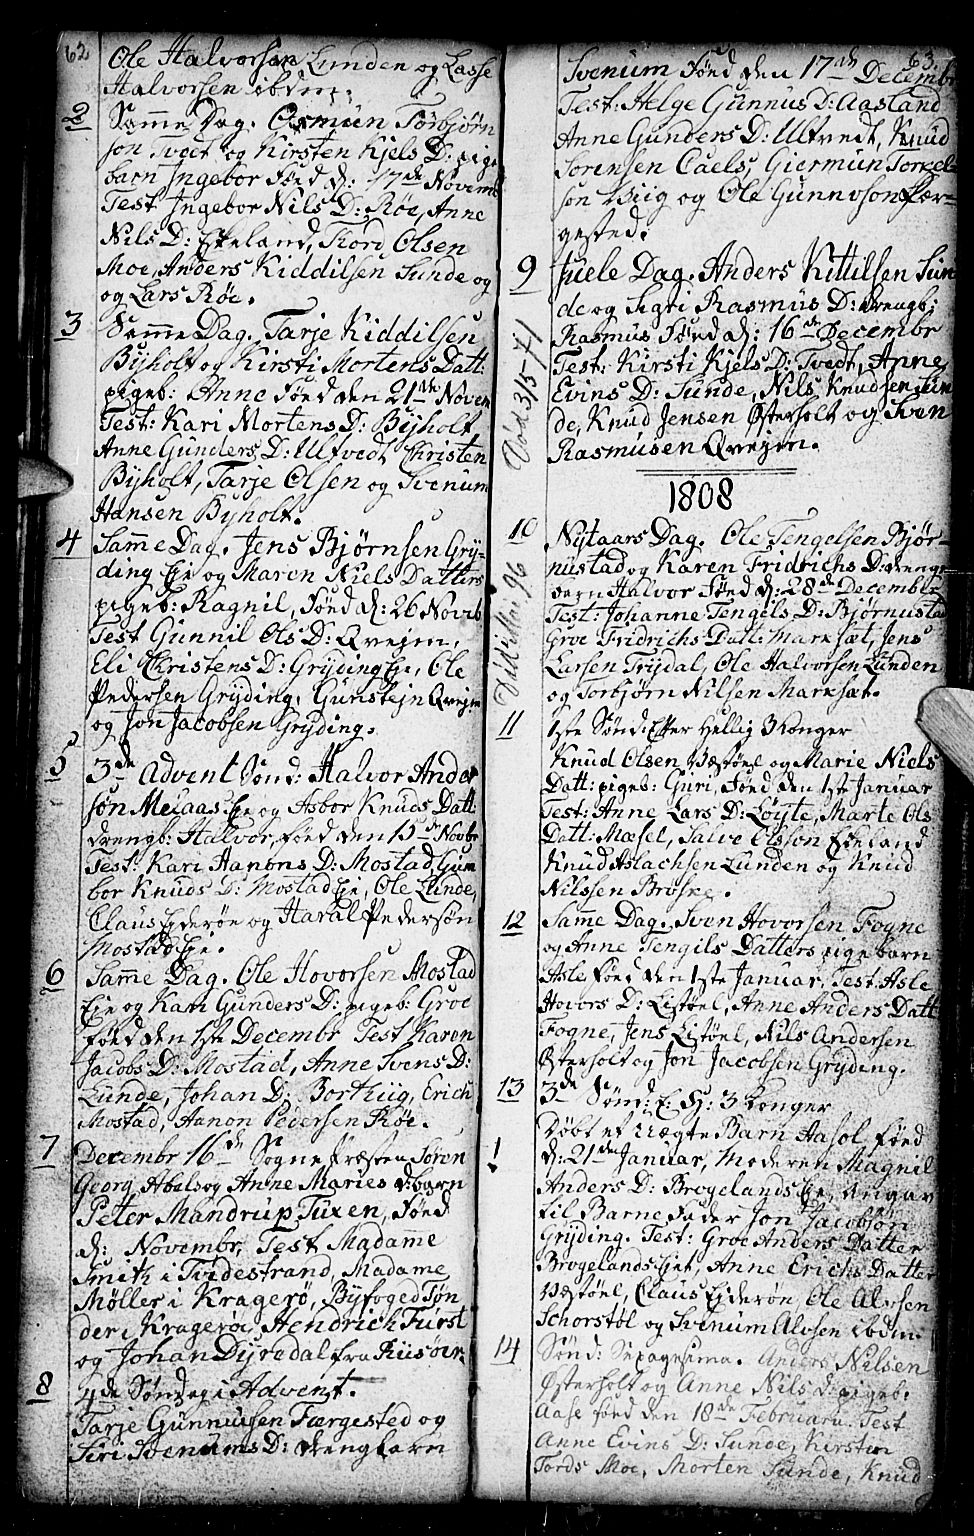 62
Ole Halvorsen Lunden og Lasse
Halvorsen ibdm.
2
Samme Dag. Osmun Torbjørn
søn Tvedt og Kirsten Kjels D: pige
barn Ingebor Fød d: 17de Novemb
Test Ingebor Nils D: Røe, Anne
Nils D: Ekeland, Thord Olsen
Moe, Anders Kiddilsen Sunde og
og Lars Røe.
3
Samme Dag. Tarje Kiddilsen
Byholt og Kirsti Mortens Datt:
pigeb: Anne Fønd den 21de Novem
Test: Kari Mortens D: Byholt
Anne Gunders D: Ulfvedt Christen
Byholt, Tarje Olsen og Svenum
Hansen Byholt.
4
Samme Dag. Jens Bjørnsen Gry-
ding Eje og Maren Niels Datters
pigeb: Ragnil, Fønd d: 26 Novb
Test Gunnil Ols D: Qvejm,
Eli Christens D: Gryding Eje, Ole
Pedersen Gryding, Gunstejn Qvejm
og Jon Jacobsen Gryding.
5
3de Advent Sønd: Halvor Ander
søn Melaas Eje og Asbor Knuds Datt
drengb: Halvor, fød den 15de Novbr
Test: Kari Hanons D: Mostad, Gun
bor Knuds D: Mostad Eje, Ole Lunde,
Claus Egderøe og Haral Pedersøn
Mostad Eje.
6
Samme Dag. Ole Hovorsen Mostad
Eje og Kari Gunders D: pigeb: Groe
født den 1ste Decembr Test Karen
Jacobs D: Mostad, Anne Svens D:
Lunde, Johan D: Borthug, Erich
Mostad, Hanon Pedersen Røe.
7
Decembr 16de Sogne Præsten Søren
Georg Abels og Anne Maries d:barn
Peter Mandrup Tuxen, Fønd
d: Novembr, Test Madame
Smith i Tvedestrand, Madame
Møller i Kragerø, Byfoged Tøn
der i Kragerøe, Hendrich Fürst
og Johan Dyredal fra Riisøer.
8
4de Søndag i Advent.
Tarje Gunnulsen Færgested og
Siri Svenums D: drengbarn
63.
Svenum Fønd den 17de Decemb
Test: Helge Gunnus D: Aasland
Anne Gunders D: Ulfvedt, Knud
Sorensen Caels, Giermun Torkel
søn Viig og Ole Gunnvson Fær-
gested.
9
Juele Dag. Anders Kittilsen Sun
de og Sigri Rasmus D: drengb:
Rasmus Fønd d: 16de Decembr
Test: Kirsti Kjels D: Tvedt, Anne
Evins D: Sunde, Nils Knudsen Sun
de, Knud Jensen Østerholt og Sven
Rasmusen Qvejm.
Død 3/5-71
1808
10
Nytaars Dag. Ole Tengelsen Bjør-
nustad og Karen Fridrichs D: drenge
barn Halvor Fønd d: 28de December
Test: Johanne Tengels D: Bjørnustad
Groe Fridrichs Datt: Marksæt, Jens
Larsen Trydal, Ole Halvorsen Lunden
og Torbjørn Nilsen Marksæt.
11
1ste Sønd: Efter Hellig 3 Konger
Knud Olsen Væstøel og Marie Niels
Datt: pigeb: Guri, Fønd den 1ste Januar
Test: Anne Lars D: Løyte, Marte Ols
Datt: Mæsel, Salve Olsson Ekeland
Knud Aslachsen Lunden og Knud
Nilssen Brøske.
12
Same Dag. Sven Hovorsen Fogne
og Anne Tengils Datters pigebarn
Asle Fønd den 1ste Januar. Test Asle
Hovors D: Listøel, Anne Anders Datt
Fogne, Jens Listøel, Nils Andersen
Østerholt og Jon Jacobsen Gryding.
13
3de Sønd: E: H: 3 Konger
Døbt et uægte Barn Aasol fønd
d: 21de Januar, Moderen Magnil
Anders D: Brogelands Eje, Angav
til Barne Fader Jon Jacobsøn
Gryding. Test: Groe Anders Datter
Brogelands Ejet, Anne Erichs Datter
Væstøel, Claus Egderøn, Ole Alvsen
Schorstøl og Svenum Alvsen ibdm.
14
Sønd: Sexagesima. Anders Nilsen
Østerholt og Anne Nils d: pigeb:
Aase Fønd den 18de Februari. Test
Anne Evins D: Sunde, Kirstin
Tords Moe, Morten Sunde, Knud